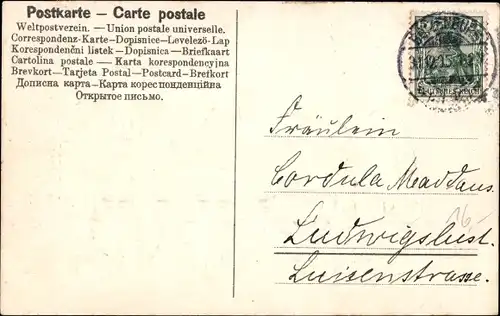 Postkarte – Carte postale
Weltpostverein. — Union postale universelle.
Correspondenz-Karte – Dopisnice – Levelezö-Lap
Korespondenční listek – Dopisnica – Briefkaart
Cartolina postale — Karta korespondencyjna
Brevkort – Tarjeta Postal – Postcard – Brefkort
Дописна карта – Карта кореспонденційна
Открытое письмо.
DEUTSCHES REICH
Fräulein
Cordula
16,-
Ludwigslust.
Luisenstrasse.